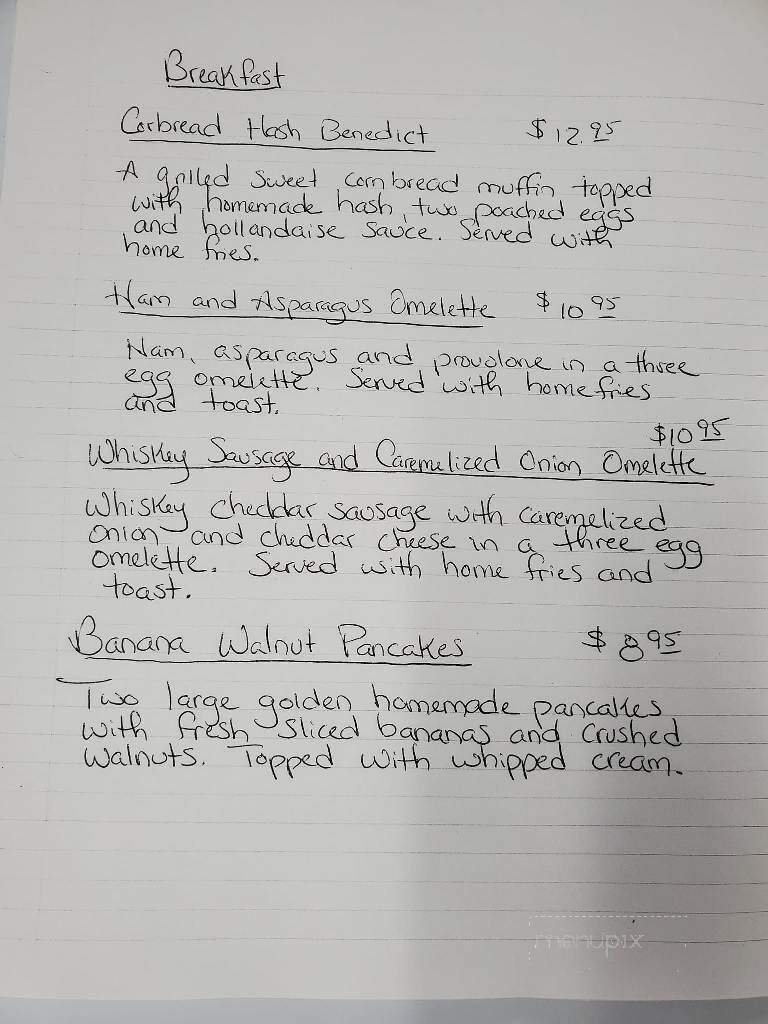 Breakfast
Corbread Hash Benedict $12.95
A grilled sweet cornbread muffin topped
with homemade hash, two poached eggs
and hollandaise sauce. Served with
home fries.
Ham and Asparagus Omelette $10 95
Ham, asparagus and provolone in a three
egg omelette. Served with home fries
and toast.
$10 95
Whiskey Sausage and Caremelized Onion Omelette
Whiskey cheddar sausage with caremelized
onion and cheddar cheese in a three egg
omelette. Served with home fries and
toast.
Banana Walnut Pancakes $8 95
Two large golden homemade pancakes
with fresh sliced bananas and crushed
walnuts. Topped with whipped cream.
menupix